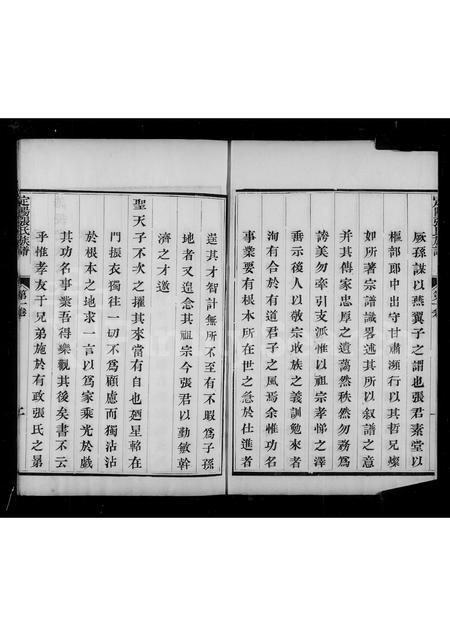 厥孫謀以燕翼子之謂也張君素堂以
樞部郎中出守甘肅瀕行以其哲兄燦
如所著宗譜識畧述其所以叙譜之意
并其傳家忠厚之遺藹然秩然勿務為
誇美勿牽引支派惟以祖宗孝悌之澤
垂示後人以敬宗收族之義訓勉來者
洵有合於有道君子之風焉余惟功名
事業要有根本所在世之急於仕進者
逞其才智計無所不至有不暇爲子孫
地者又遑念其祖宗今張君以勤敏幹
濟之才遒
聖天子不次之擢其來當有自也廼星軺在
門振衣獨往一切不爲顧慮而獨沾沾
於根本之地求一言以爲家乘光於戲
其功名事業吾得樂觀其後矣書不云
乎惟孝友于兄弟施於有政張氏之暴
定陽張氏族譜
第一卷
二